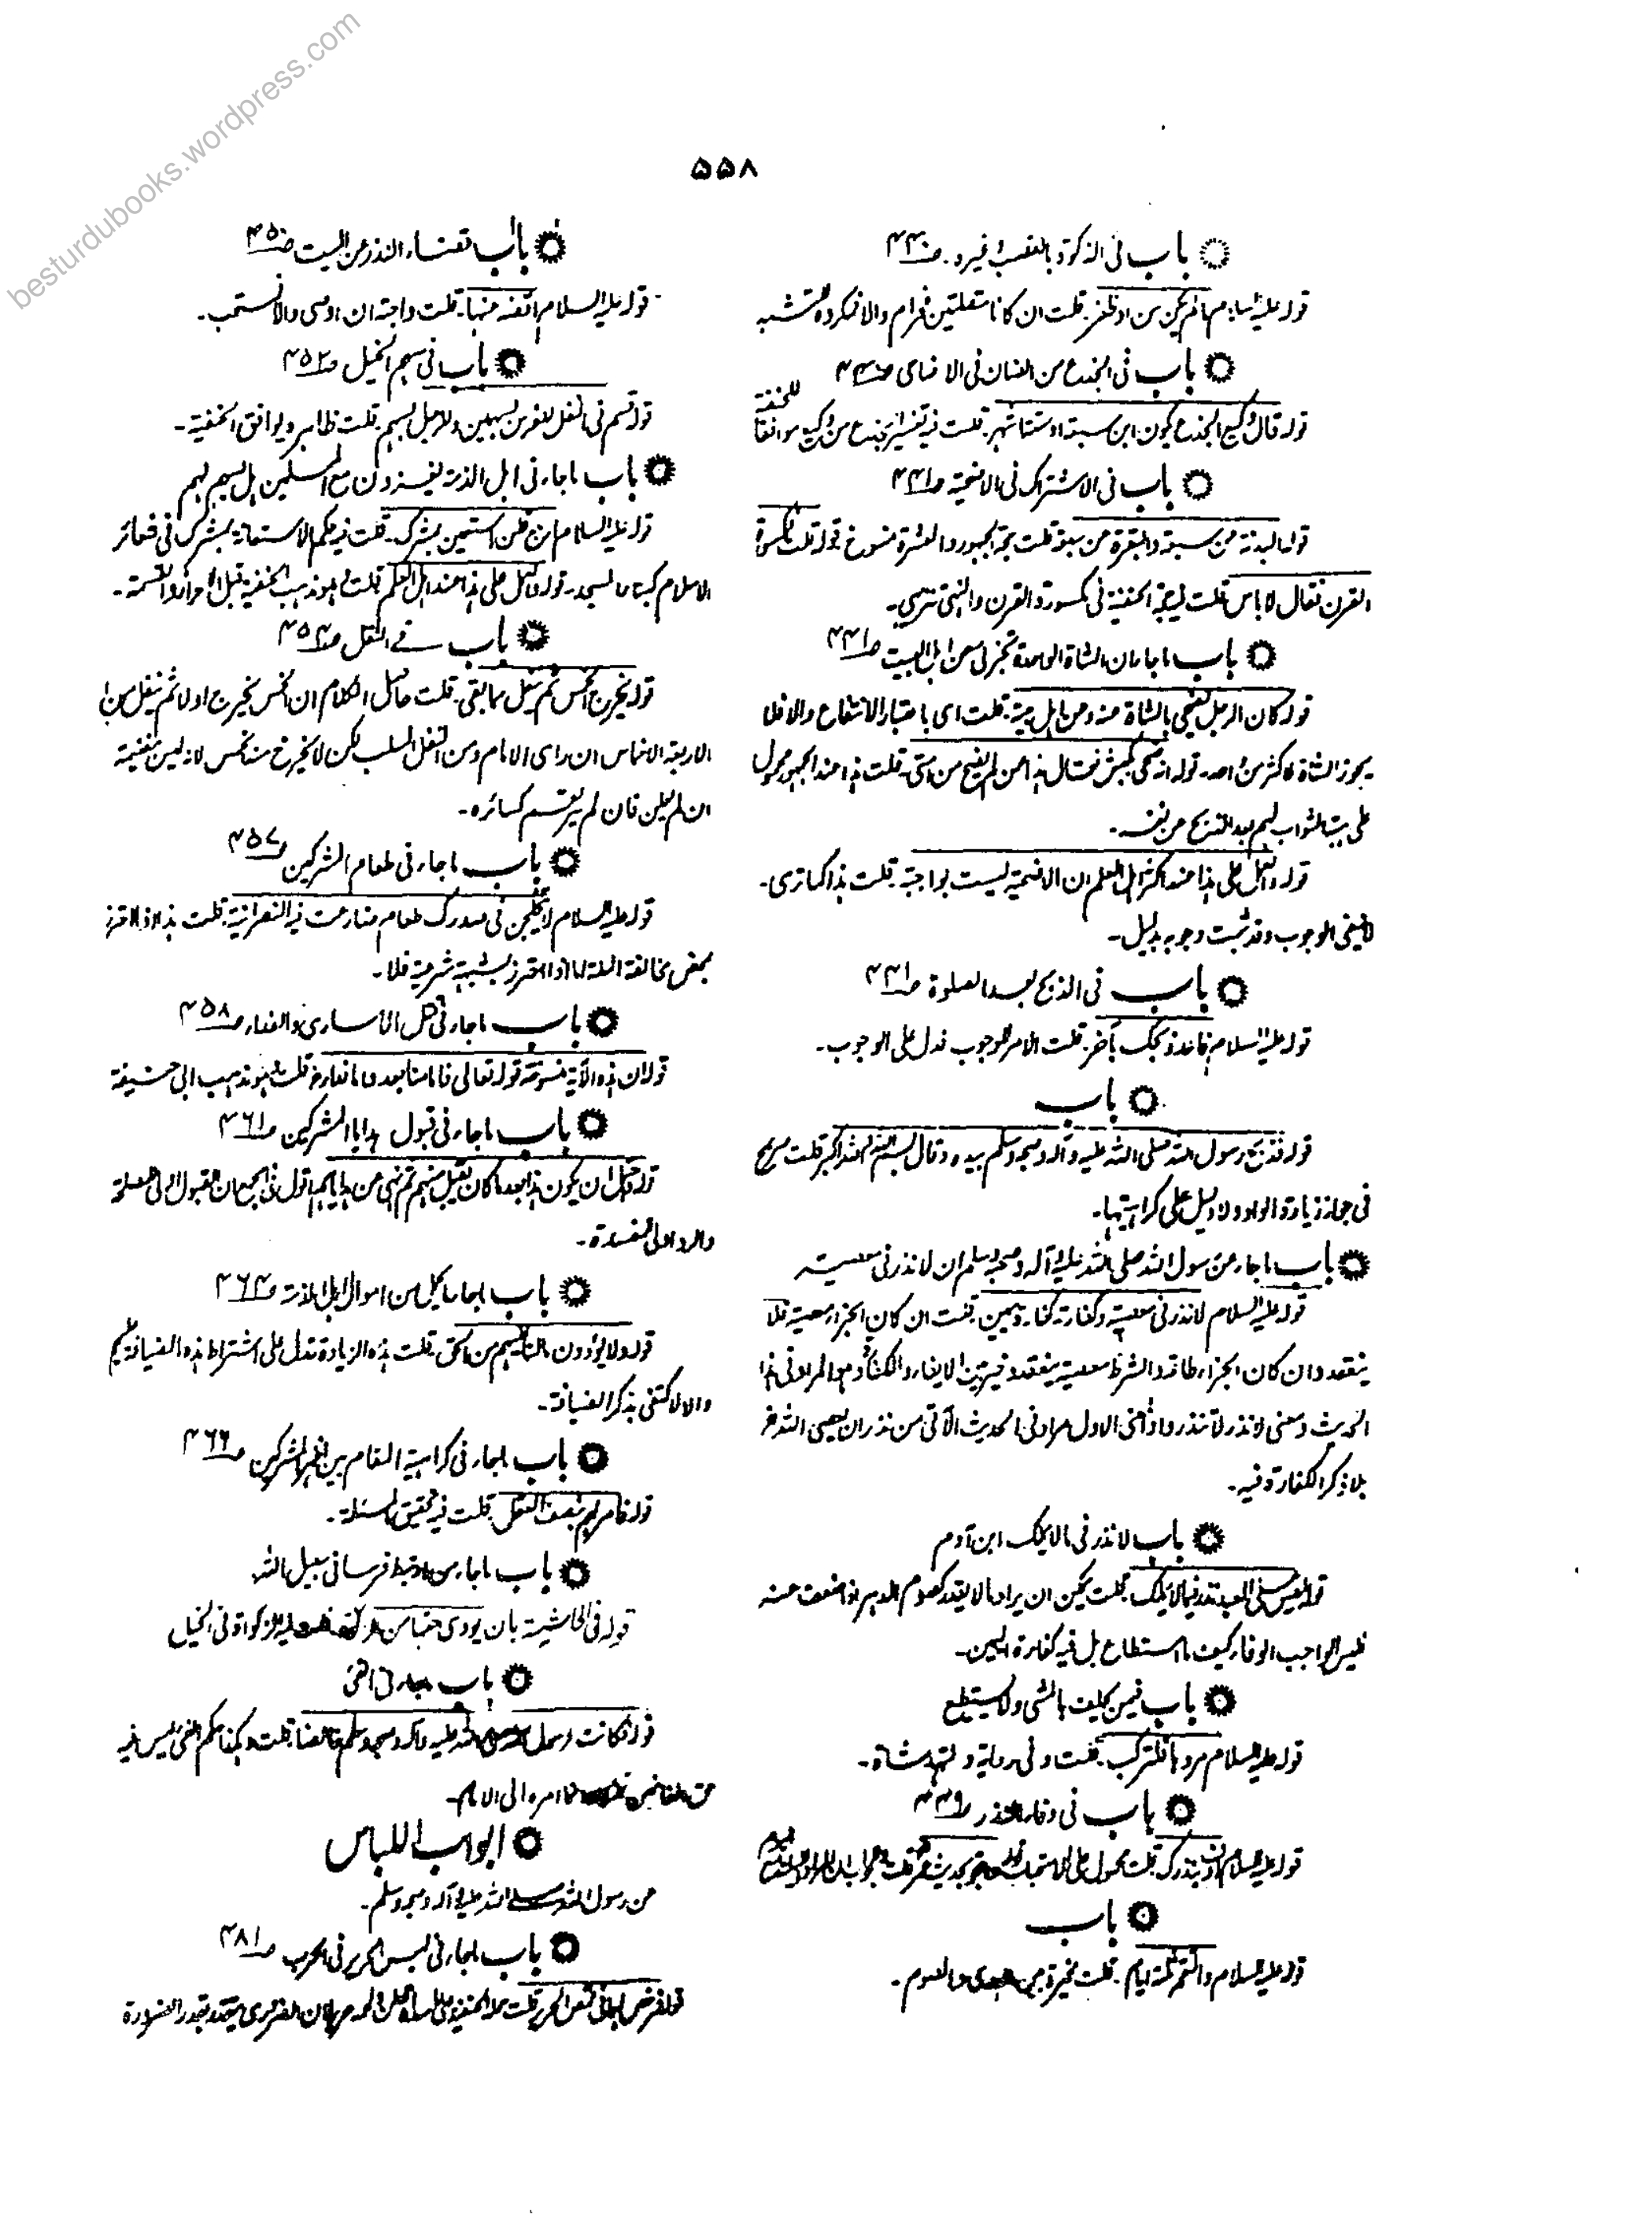 besturdubooks.wordpress.com
۵۵۸
باب فی الذکوة بالقصب وغیره۔ ص۴۴۰
قوله علیه السلام مالم یکن سن او ظفر۔ قلت ان کانا متصلتین فحرام والا فمکروه للتشبه
باب فی الجذع من الضان فی الاضاحی ص۴۴۰
قوله قال وکیع الجذع یکون ابن سبعة او ستة اشهر۔ قلت فیه تفسیر الجذع من وکیع موافقا للحنفیة
باب فی الاشتراک فی الاضحیة ص۴۴۱
قوله البدنة من سبعة والبقرة من سبعة قلت به الجمهور والعشرة منسوخ قوله قلت مکسورة
القرن فقال لا باس قلت به الحنفیة فی مکسورة القرن والنهی تنزیهی۔
باب ما جاء ان الشاة الواحدة تجزئ عن اهل البیت ص۴۴۱
قوله کان الرجل یضحی بالشاة عنه وعن اهل بیته۔ قلت ای باعتبار الانتفاع والا فلا
یجوز الشاة لاکثر من واحد۔ قوله انه ضحی بکبش فقال هذا عمن لم یضح من امتی۔ قلت هذا عند الجمهور محمول
علی هبة الثواب لهم بعد الذبح عن نفسه۔
قوله والعمل علی هذا عند اکثر اهل العلم ان الاضحیة لیست بواجبة۔ قلت هذا کما تری۔
لا ینفی الوجوب وقد ثبت وجوبه بدلیل۔
باب فی الذبح بعد الصلوة ص۴۴۱
قوله علیه السلام فاعد ذبحک بآخر۔ قلت الامر للوجوب فدل علی الوجوب۔
باب
قوله فذبح رسول الله صلی الله علیه وآله وصحبه وسلم بیده وقال بسم الله والله اکبر قلت صریح
فی جواز زیادة الواو ولا دلیل علی کراهیتها۔
باب ما جاء عن رسول الله صلی الله علیه وآله وصحبه وسلم ان لا نذر فی معصیة
قوله علیه السلام لا نذر فی معصیة وکفارته کفارة یمین۔ قلت ان کان الجزاء معصیة فلا
ینعقد وان کان الجزاء طاعة والشرط معصیة ینعقد ویخیر بین الایفاء والکفارة وهو المراد فی هذا
الحدیث ومعنی لا نذر لا تنذروا والمعنی الاول مراد فی الحدیث الآتی من نذر ان یعصی الله الخ
بلا ذکر الکفارة فیه۔
باب لا نذر فی ما لا یملک ابن آدم
قوله لیس علی العبد نذر فیما لا یملک۔ قلت یمکن ان یراد ما لا یقدر کصوم الدهر اذا ضعف عنه
فلیس الواجب الوفاء کیف ما استطاع بل فیه کفارة الیمین۔
باب فیمن یحلف بالمشی ولا یستطیع
قوله علیه السلام مروها فلترکب۔ قلت وفی روایة ولتهد شاة۔
باب فی وفاء النذر ص۴۴۹
قوله علیه السلام اوف بنذرک۔ قلت محمول علی الاستحباب
باب
قوله علیه السلام ولتصم ثلثة ایام۔ قلت مخیرة بین الهدی والصوم۔
باب قضاء النذر عن المیت ص۴۵۰
قوله علیه السلام اقضه عنها۔ قلت واجبة ان اوصی والا فمستحب۔
باب فی سهم الخیل ص۴۵۲
قوله قسم فی النفل للفرس بسهمین وللرجل بسهم۔ قلت ظاهره یوافق الحنفیة۔
باب ما جاء فی اهل الذمة یغزون مع المسلمین هل یسهم لهم
قوله علیه السلام ارجع فلن استعین بمشرک۔ قلت فیه حکم الاستعانة بمشرک فی شعائر
الاسلام کبناء المسجد۔ قوله والعمل علی هذا عند اهل العلم قلت هو مذهب الحنفیة قبل الاحراز والقسمة۔
باب فی النفل ص۴۵۴
قوله یخرج الخمس ثم ینفل مما بقی۔ قلت حاصل الکلام ان الخمس یخرج اولا ثم ینفل من
الاربعة الاخماس ان رای الامام ومن النفل السلب لکن لا یخرج منه الخمس لانه لیس بغنیمة
ان اعلن فان لم یعلن قسم کسائره۔
باب ما جاء فی طعام المشرکین ص۴۵۷
قوله علیه السلام لا یتخلجن فی صدرک طعام ضارعت فیه النصرانیة۔ قلت هذا اذا احترز
بمحض مخالفة الملة اما اذا احترز بشبهة شرعیة فلا۔
باب ما جاء فی قتل الاساری والفداء ص۴۵۸
قوله ان هذه الآیة منسوخة قوله تعالی فاما منا بعد واما فداء الخ قلت هو مذهب ابی حنیفة
باب ما جاء فی قبول هدایا المشرکین ص۴۶۱
قوله یحتمل ان یکون هذا بعد ما کان یقبل منهم ثم نهی عن هدایاهم اقول فی الجمع ان القبول اولی لمصلحة
والرد اولی لمفسدة۔
باب ما جاء ما یحل من اموال اهل الذمة ص۴۶۴
قوله ولا یؤدون مالنا علیهم من الحق۔ قلت هذه الزیادة تدل علی اشتراط هذه الضیافة علیهم
والا لاکتفی بذکر الضیافة۔
باب ما جاء فی کراهیة المقام بین اظهر المشرکین ص۴۶۶
قوله فامر لهم بنصف العقل قلت فیه تحقیق المسئلة۔
باب ما جاء من ارتبط فرسا فی سبیل الله
قوله فی الحاشیة بان یودی حقها من الزکواة فی الخیل
باب ما جاء فی الفئ
قوله فکانت لرسول الله صلی الله علیه وآله وصحبه وسلم خالصا۔ قلت هکذا حکم الفئ لیس فیه
حق للغانمین امره الی الامام۔
ابواب اللباس
عن رسول الله صلی الله علیه وآله وصحبه وسلم۔
باب ما جاء فی لبس الحریر فی الحرب ص۴۸۱
قوله فرخص لهما فی قمص الحریر قلت
الضروری یتقدر بقدر الضرورة